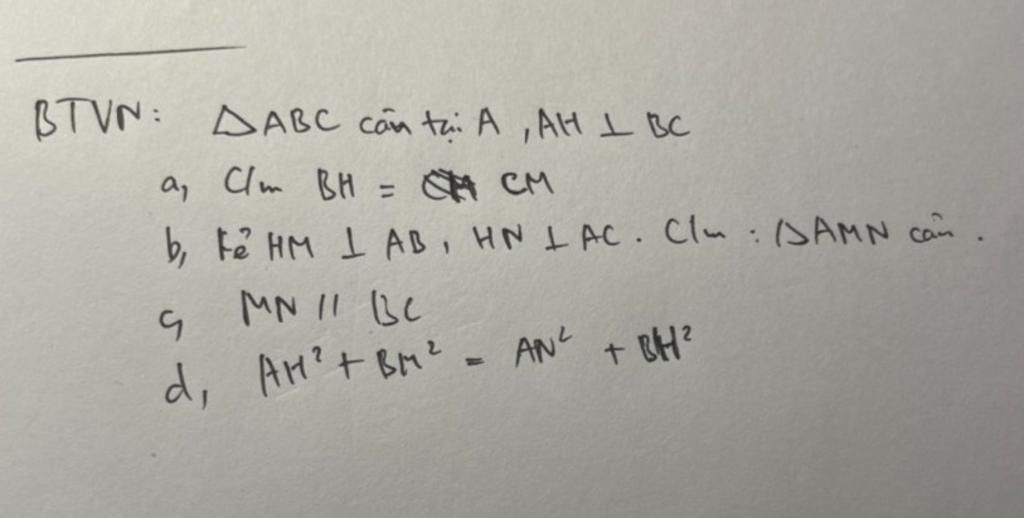 BTVN: △ABC cân tại A, AH ⊥ BC
a, C/m BH = CM
b, Kẻ HM ⊥ AB, HN ⊥ AC. C/m : △AMN cân.
c, MN // BC
d, AH² + BM² = AN² + BH²